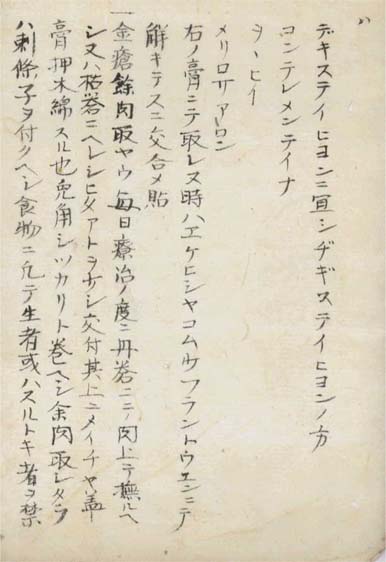 デキステイヒヨンニ宜シヂギステイヒヨンノ方
コンテレメンテイナ
ヲヽヒイ
メリロサアロン
右ノ膏ニテ取レヌ時ハエケヒシヤコムウフラントウエンニテ
解キテスニ交合〆貼
一金瘡餘肉取ヤウ毎日療治ノ度ニ丹礬ニテ肉上ヲ撫ルヘ
シ又ハ枯礬ニヘレシヒタアトヲサシ交付其上ニメイチヤ蓋
膏押木綿スル也兎角シツカリト巻ヘシ余肉取レタラ
ハ刺條子ヲ付クヘシ食物ニ凡テ生者或ハスルトキ者ヲ禁